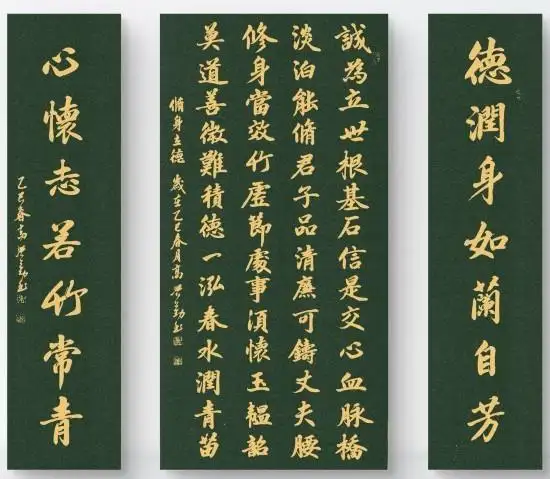 德潤身如蘭自芳
誠為立世根基石信是交心血脈橋
淡泊能脩君子品清廉可鑄丈夫腰
修身當效竹虛節處事須懷玉韞韶
莫道善微難積德一泓春水潤青苗
脩身立德 歲在乙巳春月高勤
心懷志若竹常青
乙巳春高勤